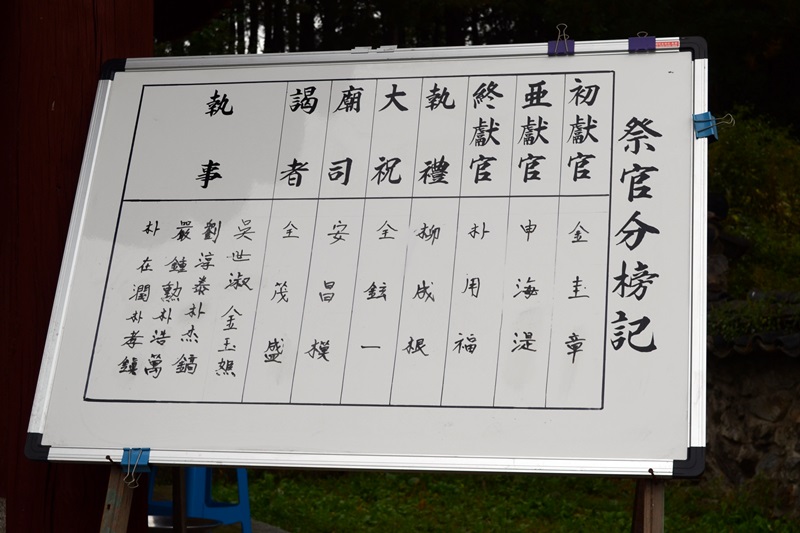 祭官分榜記
初獻官
金圭章
亜獻官
申海湜
終獻官
朴用福
執禮
柳成根
大祝
全鉉一
廟司
安昌模
謁者
全茂盛
執事
吳世淑 金玉
劉淳泰 朴杰鎬
嚴鍾勲 朴浩萬
朴在潤 朴孝鎭